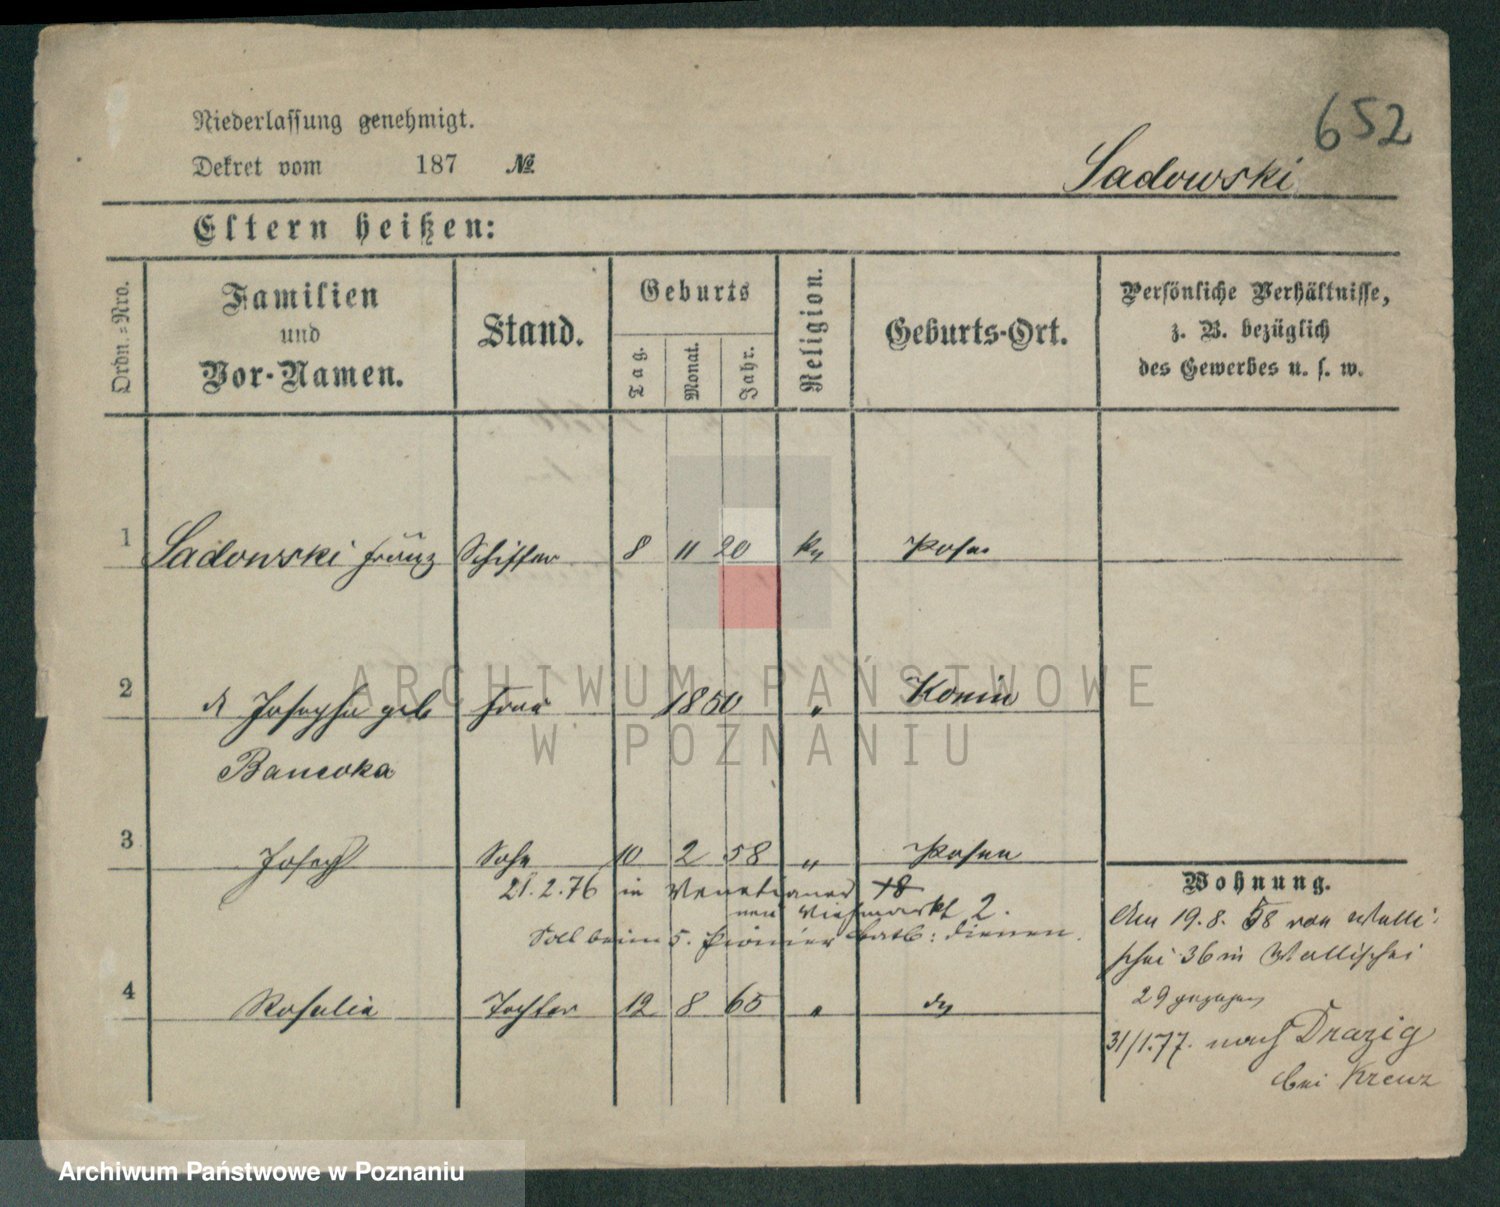 652
Niederlassung genehmigt.
Dekret vom 187 №
Sadowski
Eltern heißen:
Ordn.-Nro.
Familien und Vor-Namen.
Stand.
Geburts
Tag.
Monat.
Jahr.
Religion.
Geburts-Ort.
Persönliche Verhältnisse,
z. B. bezüglich
des Gewerbes u. s. w.
1 Sadowski Franz Schiffer 8 11 20 Posen
2 Josepha geb Frau 1850 " Konin
3 Joseph Sohn 10 2 58 " Posen
21.2.76 in Venetianer 18
neu Viehmarkt 2.
Soll beim 5. Pionier Batl: dienen.
4 Rosalia Tochter 12 8 65 "
Wohnung.
Am 19.8. 58 von Walli-
schei 36 in Wallischei
29 gezogen
31/1.77. nach Drazig
bei Kreuz
ARCHIWUM PAŃSTWOWE
W POZNANIU
Archiwum Państwowe w Poznaniu